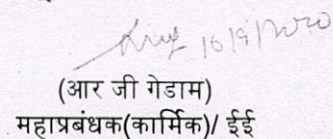 16/9/2020
(आर जी गेडाम)
महाप्रबंधक(कार्मिक)/ ईई